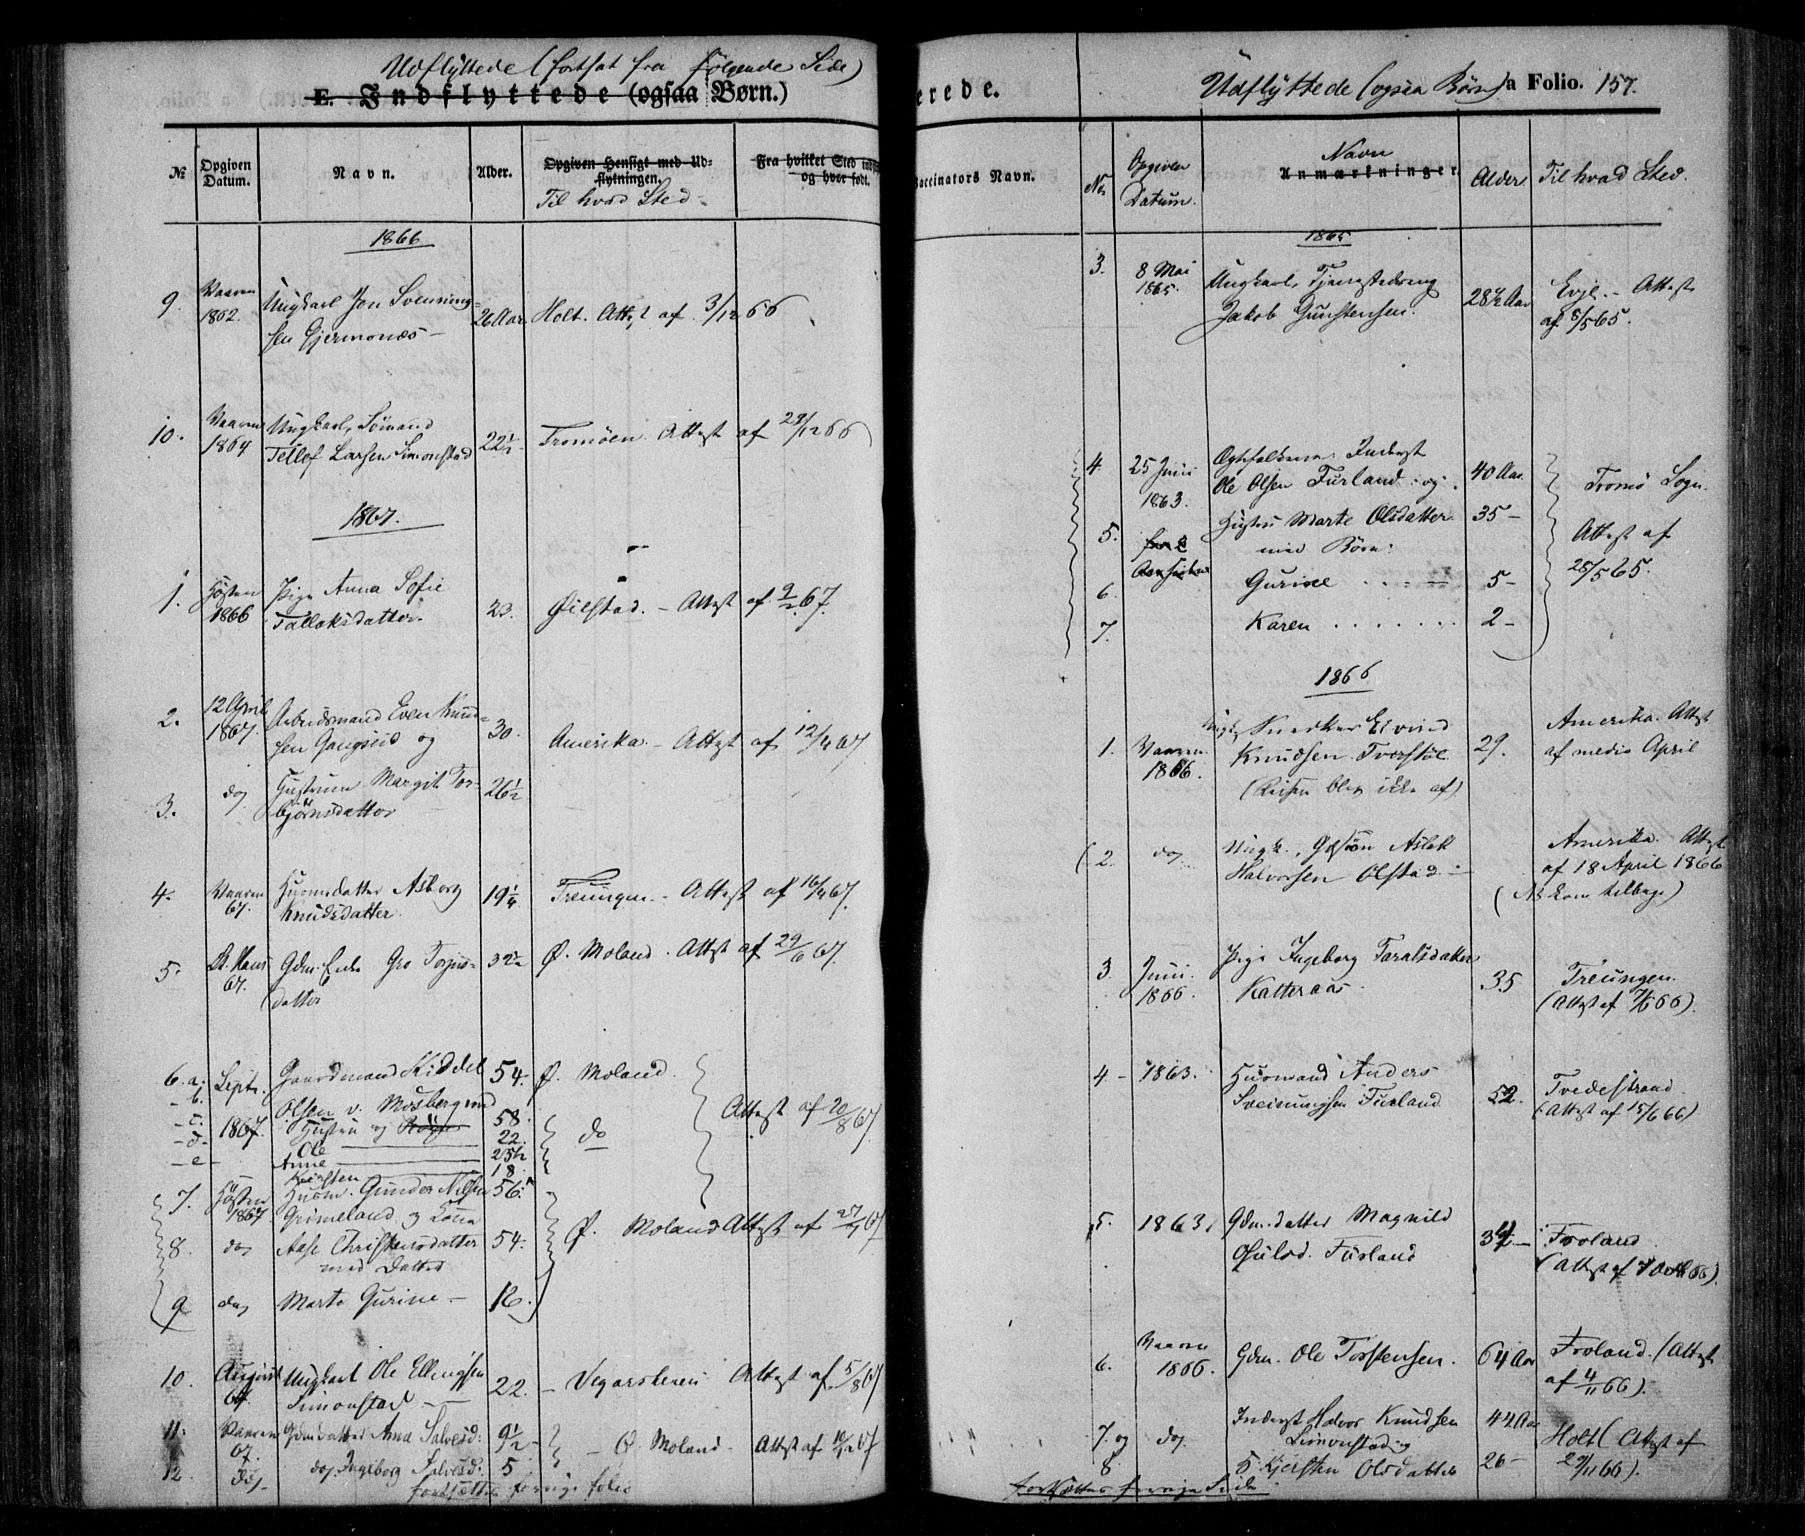 Udflyttede (fortsat fra følgende Side)
E. Indflyttede (ogsaa Børn.)
№ Opgiven Datum. Navn. Alder. Opgiven Hensigt med Udflytningen. Fra hvilket Sted og hvor født.
Til hvad Sted
1866
9. Vaaren Ungkarl Jon Svenning-
1862 sen Gjermonæs 26 Aar Holt. Attest af 3/12 66
10. Vaaren Ungkarl, Sømand
1864 Tellof Larsen Simonstad 22½ Tromöen. Attest af 29/12 66
1867.
1. Høsten Pige Anna Sofie
1866 Tallaksdatter. 23. Øiestad. - Attest af 9/2 67.
2. 12 April Arbeidsmand Even Knud-
1867 sen Gangsei og 30. Amerika - Attest af 12/4 67
3. do Hustrue Margit Tor-
björnsdatter 26½
4. Vaaren Huusmdatter Asborg
67. Knudsdatter 19¼ Treungen - Attest af 16/4 67.
5. St. Hans Gdm. Enke Gro Torjus-
67. datter 32½ Ø. Moland. Attest af 29/6 67.
6. a. Sept. Gaardmand Kiddel 54. Ø. Moland.
- b. Olsen v. Mosberg med
- c. 1867. Hustru og 58. do Attest af 20/8 67
- d - Ole 22.
- e - Anne 23½
Kirsten 18
7. Høsten Huusm. Gunder Nilsen 56
1867 Grimeland og Kona
8. do Aase Christensdatter 54. Ø. Moland Attest af 27/9 67
med Datter
9 do Marte Gurine - 12.
10. August Ungkarl Ole Ellingsen
67 Simonstad 22. - Vegarsheien Attest af 5/8 67
11. Vaaren Gdmdatter Anna Salvesd: 9½ - Ø. Moland. Attest af 10/12 67
67.
12. do do Ingeborg Salvesd: 5
fortsættes forrige folio
erede.
Udflyttede (ogsaa Børn) a Folio. 157.
Vaccinators Navn. No Opgiven Datum. Navn Anmærkninger. Alder. Til hvad Sted.
1865
3. 8 Mai Ungkarl, Tjenestedreng
1865. Jakob Gunstensen. 28½ Aar Evje. - Attest
af 8/5 65.
4 25 Juni Ægtefolkene: Inderst
1863. Ole Olsen Furland og 40 Aar Tromö Sogn.
5. Hustru Marte Olsdatter 35 -
med Børn: Attest af
6. Gurine 5 - 28/5 65.
7. Karen 2 -
1866
1. Vaaren Ungk. Snedker Eivind
1866. Knudsen Tverstöl 29. Amerika. Attest
(Reisen blev ikke af) af medio April
2. do Ungk., Gdsøn Aslak Amerika. Attest
Halvorsen Olstad - af 18 April 1866
(NB kom tilbage)
3. Juni Pige Ingeborg Taralsdatter
1866. Katteraas. 35 Treungen.
(Attest af 7/6 66).
4 - 1863. Huusmand Anders
Sveinungsen Furland 52. Tvedestrand
(Attest af 15/6 66)
5. 1863. Gdm.datter Magnild
Gulsd. Furland 34 - Froland
(Attest af 7 Octb 66).
6. Vaaren
1866. Gdm. Ole Torstensen. 64 Aar Froland. (Attest
af 4/11 66).
7. og do Inderst Halvor Knudsen 44 Aar
Simonstad og Holt (Attest af
8 Kjersten Olsdatter 26 - 29/11 66).
fortsættes forrige Side